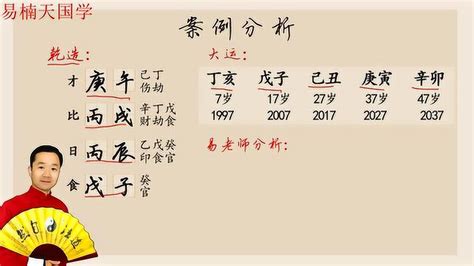 易楠天国学
案例分析
乾造：
才 庚午 己丁
伤劫
比 丙戌 辛丁戊
财劫食
日 丙辰 乙戊癸
印食官
食 戊子 癸
官
大运：
丁亥 戊子 己丑 庚寅 辛卯
7岁 17岁 27岁 37岁 47岁
1997 2007 2017 2027 2037
易老师分析：